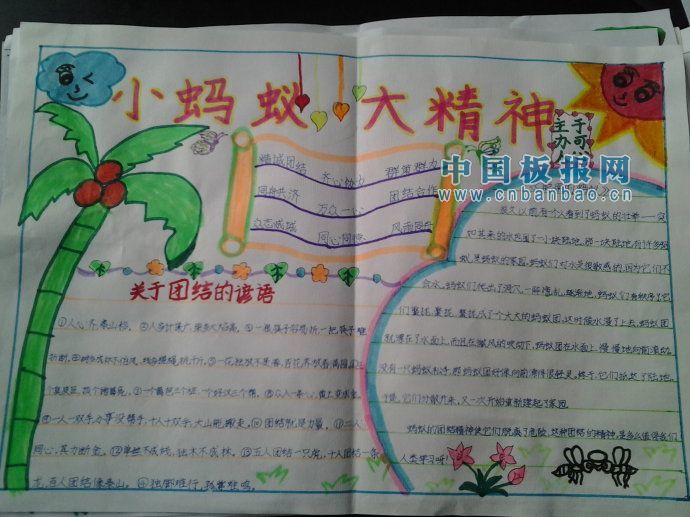 小蚂蚁 大精神
主办
于可
精诚团结 齐心协力 群策群力
同舟共济 万众一心 团结合作
众志成城 同心同德 风雨同舟
中国板报网
www.cnbanbao.cn
关于团结的谚语
①人心齐,泰山移。②人多计谋广,柴多火焰高。③一根筷子容易折,一把筷子难
折断。
⑤一花独放不是春,百花齐放春满园。
个臭皮匠,顶个诸葛亮。⑦一个篱笆三个桩,一个好汉三个帮。⑧众人一条心,黄土变成金。
⑨一人一双手,办事没帮手,十人十双手,大山能搬走。⑩团结就是力量。⑪二人
同心,其力断金。⑫单丝不成线,独木不成林。⑬五人团结一只虎,十人团结一条
龙,百人团结像泰山。⑭独脚难行,孤掌难鸣。
很久以前,有个人看到了蚂蚁的壮举——突
如其来的水包围了一小块陆地,那一块陆地有许多蚂
蚁,是蚂蚁的家园,蚂蚁们对水是很敏感的,因为它们不
会水,蚂蚁们爬出了洞穴,一阵慌乱,
聚拢,聚拢,聚拢成了个大大的蚂蚁团,这时候水漫了上去,蚂蚁团
就漂在了水面上,而且在微风的吹动下,蚂蚁团在水面上,慢慢地向前滚动,
没有一只蚂蚁松手,
于是,它们分散开来,又一次开始重新建起了家园。
蚂蚁的团结精神使它们脱离了危险,这种团结的精神,是多么值得我们
人类学习啊!